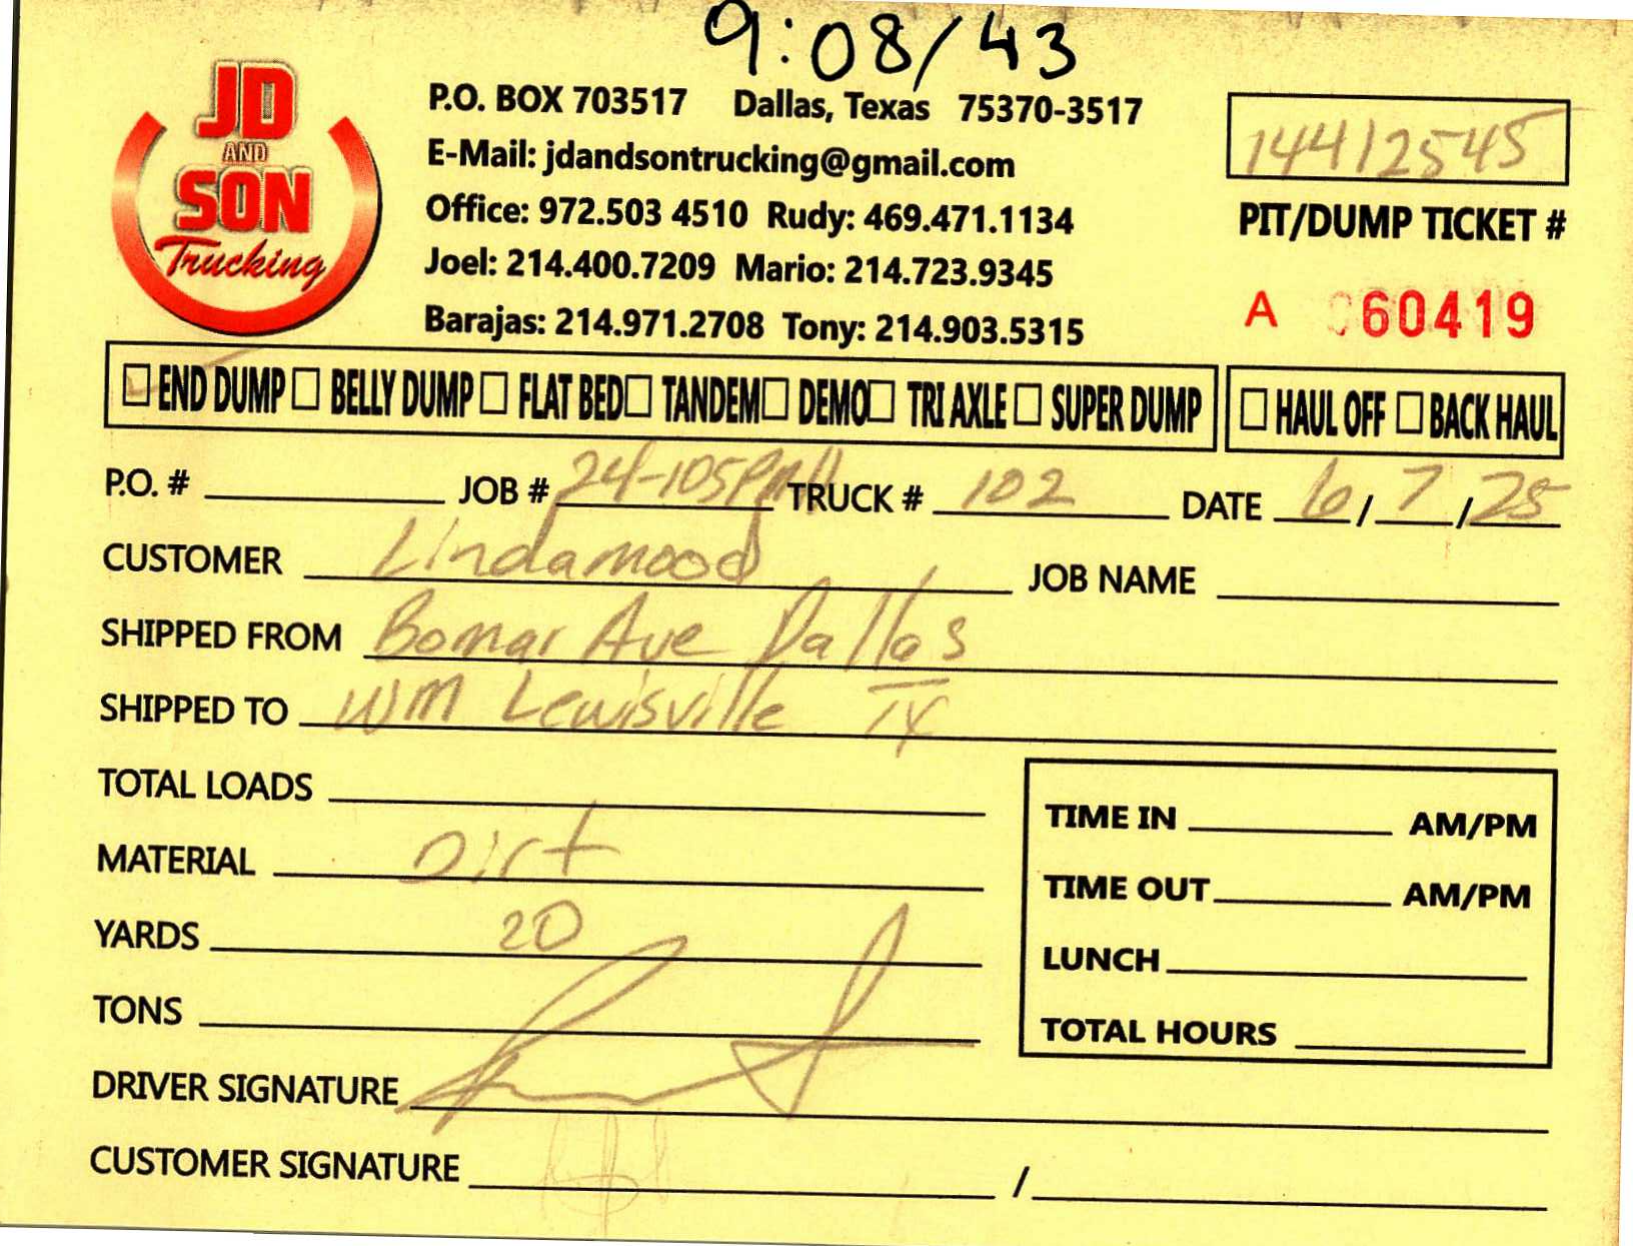 9:08/43
JD
AND
SON
Trucking
P.O. BOX 703517 Dallas, Texas 75370-3517
E-Mail: jdandsontrucking@gmail.com
Office: 972.503 4510 Rudy: 469.471.1134
Joel: 214.400.7209 Mario: 214.723.9345
Barajas: 214.971.2708 Tony: 214.903.5315
14412545
PIT/DUMP TICKET #
A 060419
☐ END DUMP ☐ BELLY DUMP ☐ FLAT BED ☐ TANDEM ☐ DEMO ☐ TRI AXLE ☐ SUPER DUMP ☐ HAUL OFF ☐ BACK HAUL
P.O. # JOB # 24-105 TRUCK # 102 DATE 6/7/25
CUSTOMER Lindamood JOB NAME
SHIPPED FROM Bomar Ave Dallas
SHIPPED TO WM Lewisville TX
TOTAL LOADS
MATERIAL Dirt
YARDS 20
TONS
DRIVER SIGNATURE
CUSTOMER SIGNATURE /
TIME IN AM/PM
TIME OUT AM/PM
LUNCH
TOTAL HOURS